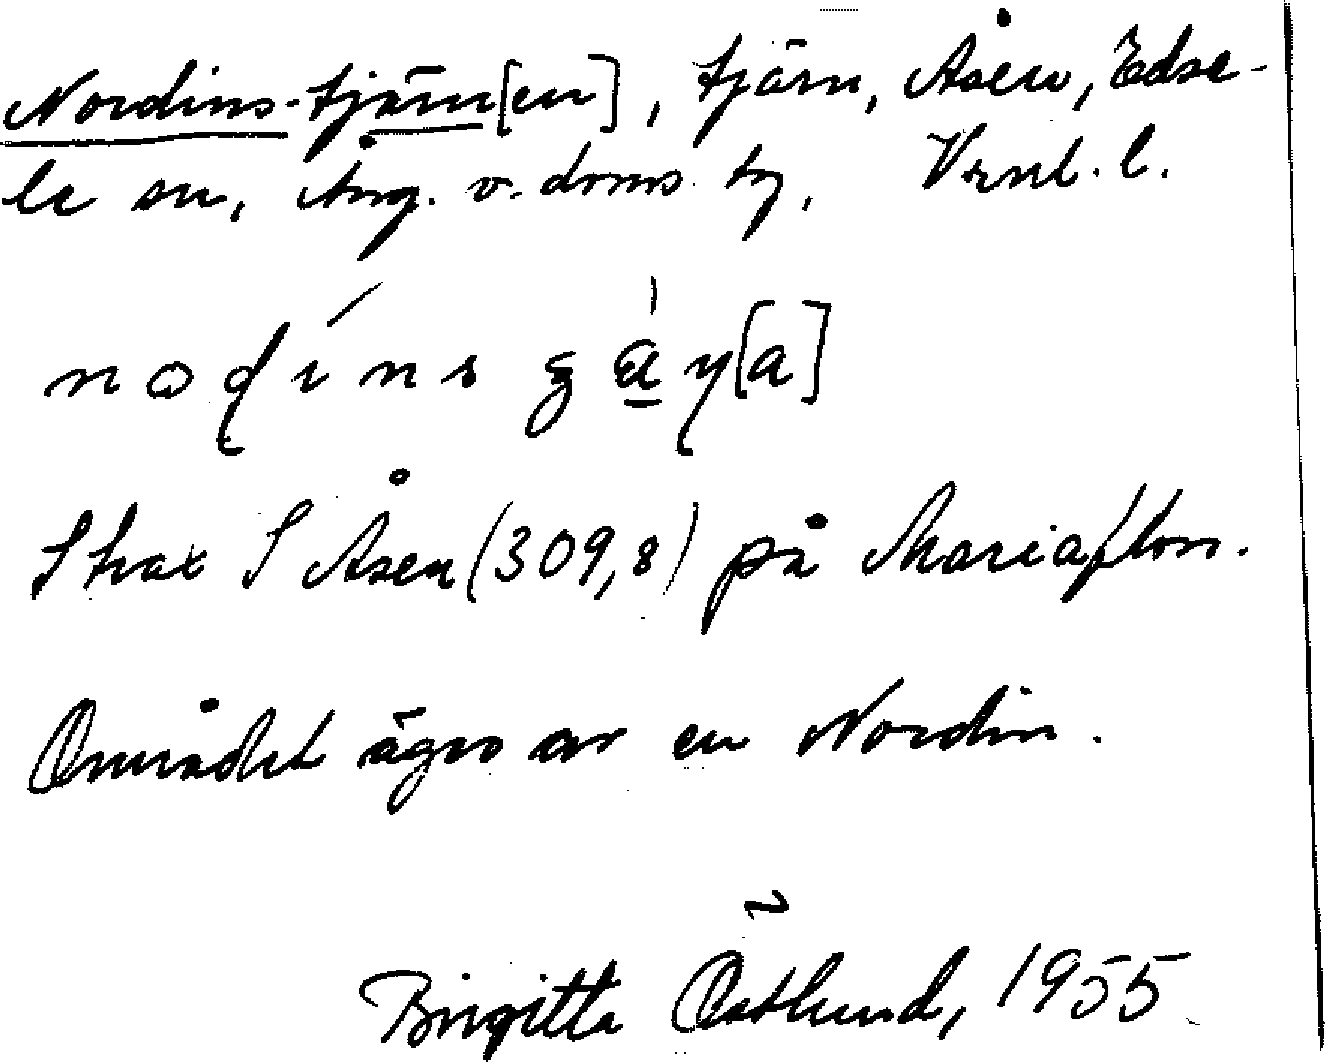 Nordins-tjärn[en], tjärn, Åsen, Edse-
le sn, Ång. v. doms. tg, Vrnl. l.
nodins gäɳ[a]
Strax S Åsen (309,8) på Mariaflon.
Området äges av en Nordin.
Birgitta Östlund, 1955